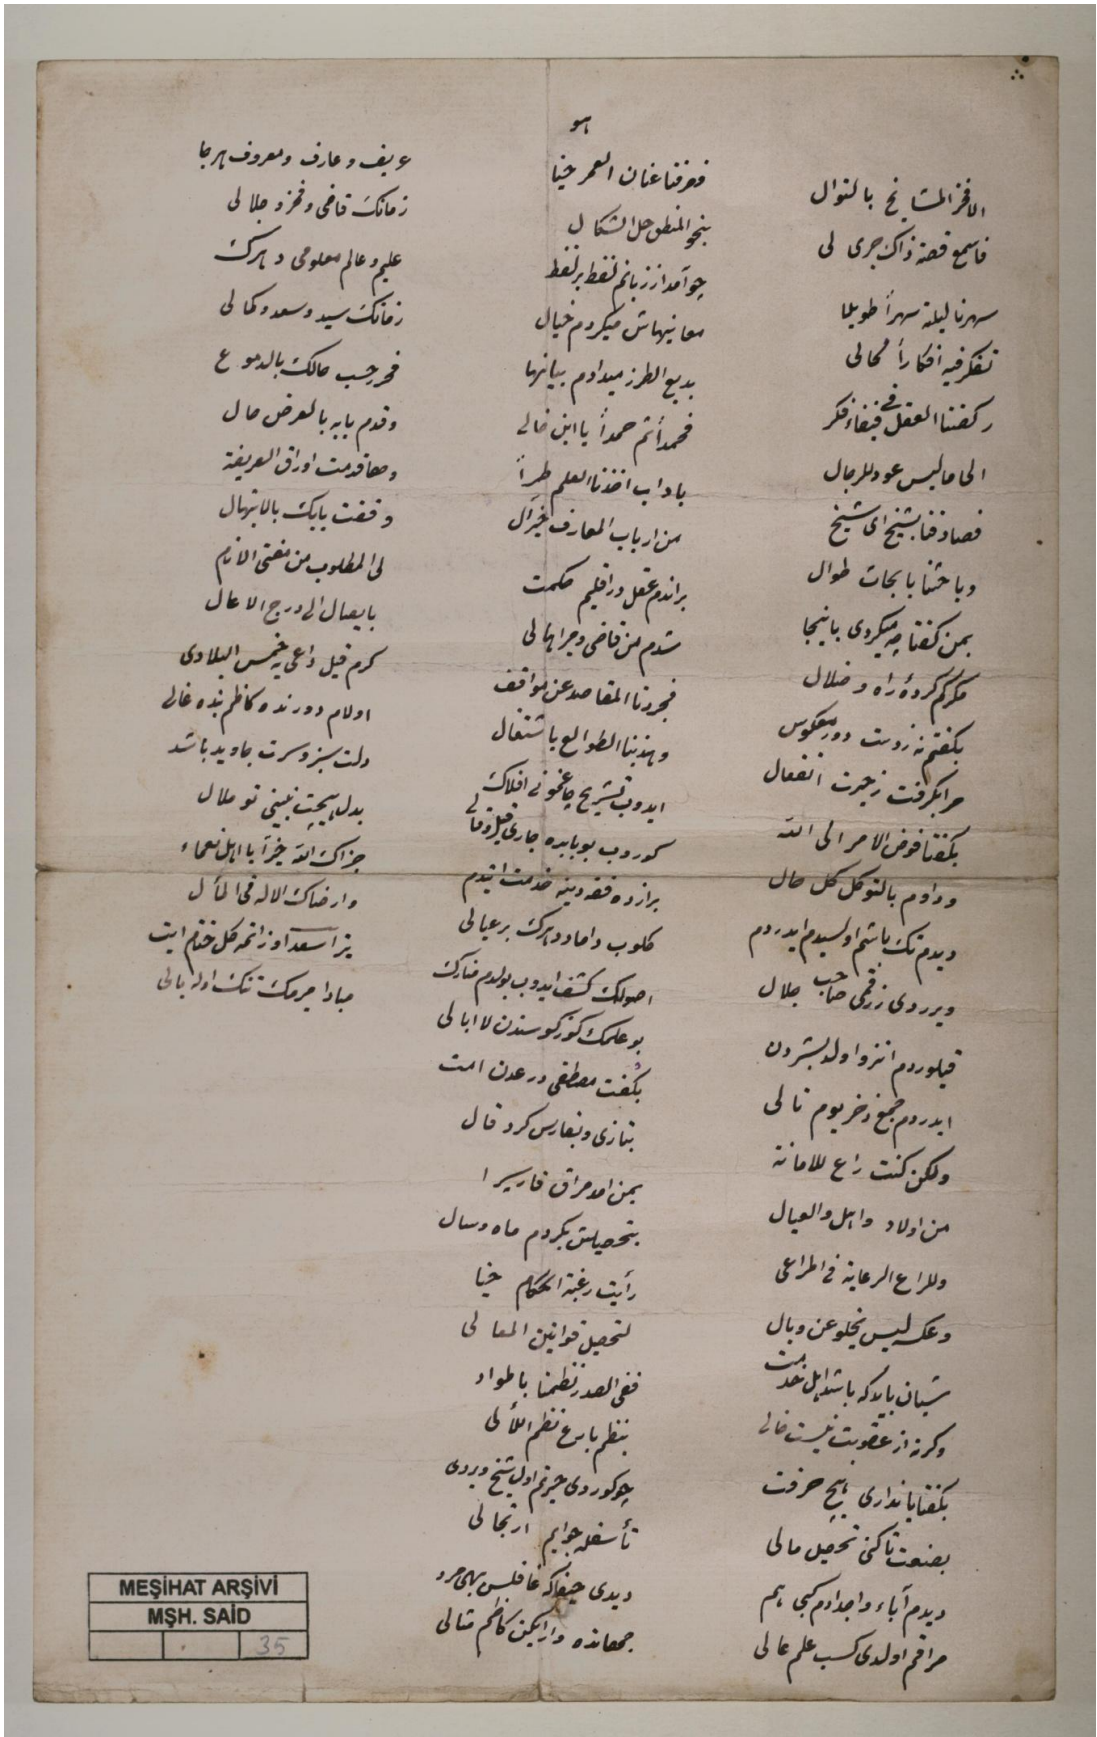 هو
الا فخر المشايخ بالنوال
فاسمع قصة ذاك جرى لى
سهرنا ليلة سهراً طويلا
تفكر فيه افكاراً محالى
ركضنا العقل فى فيفاء فكر
الى ما ليس عود للرجال
فصادفنا بشيخ اى شيخ
وباحثنا بابحاث طوال
بمن كفتا چه ميكردى باينجا
مكر كم كردۀ راه وضلال
بكفتم نه زدست دور معكوس
مرا بكرفت زحيرت انفعال
بكفتا فوض الامر الى الله
وداوم بالتوكل كل حال
ديدم تك باشم اولسيدم ايدردم
ويرردى رزقمى صاحب جلال
قيلوردم انزوا اولد بشردن
ايدردم جمع ذخر يوم تالى
ولكن كنت راع للامانة
من اولاد واهل والعيال
وللراع الرعاية فى المراعى
وعكسه ليس يخلو عن وبال
شبان بايد كه باشد اهل خدمت
وكرنه از عقوبت نيست خالى
بكفتا يا ندارى هيچ حرفت
بصنعت تا كنى تحصيل مالى
ديدم آباء واجدادم كبى هم
مراقم اولدى كسب علم عالى
فصرفنا عنان العمر حينا
بنحو المنطق حل الشكال
چو آمد از زبانم لفظ بر لفظ
معانيهاش ميكردم خيال
بديع الطرز ميدادم بيانها
فحمداً ثم حمداً يا ابن خالى
باداب اخذنا العلم طراً
من ارباب المعارف خير آل
براندم عقل در اقليم حكمت
شدم من قاضى ومير اهالى
فجردنا المقاصد عن مواقف
وهذبنا الطوالع باشتغال
ايدوب تشريح چاغمونى افلاك
كوروب بو بابده جارى قيل وقالى
براز ده فقه دينه خدمت ايتدم
كلوب داماد دهرك بر عيالى
اصولك كشف ايدوب بولدم منارك
بو علمك كوز كوسندن لا ابالى
بكفت مصطفى در عدن امت
بتازى وبفارس كرد قال
بمن امد مراق فارسيرا
بتحصيلش بكردم ماه وسال
رأيت رغبة الحكام حينا
لتحصيل قوانين المعالى
ففى الصدر نظمنا باطواد
بنظم بارع نظم اللألى
چو كوردى حيرتم اول شيخ ويردى
تأسفله جوابم ارتجالى
ديدى حيفا كه غافلسن بهى مرد
جمعانده وار ايكن كاظم مثالى
عريف وعارف ومعروف هر جا
زمانك قاضى وفخر وجلالى
عليم وعالم معلومى دهرك
زمانك سيد وسعد وكمالى
فحرر حسب حالك بالدموع
وقدم بابه بالعرض حال
وها قدمت اوراق العريضة
وقفت بابك بالابتهال
لى المطلوب من مفتى الانام
بايصال الى درج الاعال
كرم قيل داعى يه خمس البلادى
اولام دورنده كاظم بنده غالى
دلت سبز وسرت جاويد باشد
بدل هيچت نبينى تو ملال
جزاك الله خيراً يا اهل نعماء
وارضاك الاله فى المأل
يتر اسعد اوزاتمه كل ختام ايت
مبادا حرمك تنك اوله بالى
MEŞİHAT ARŞİVİ
MŞH. SAİD
35